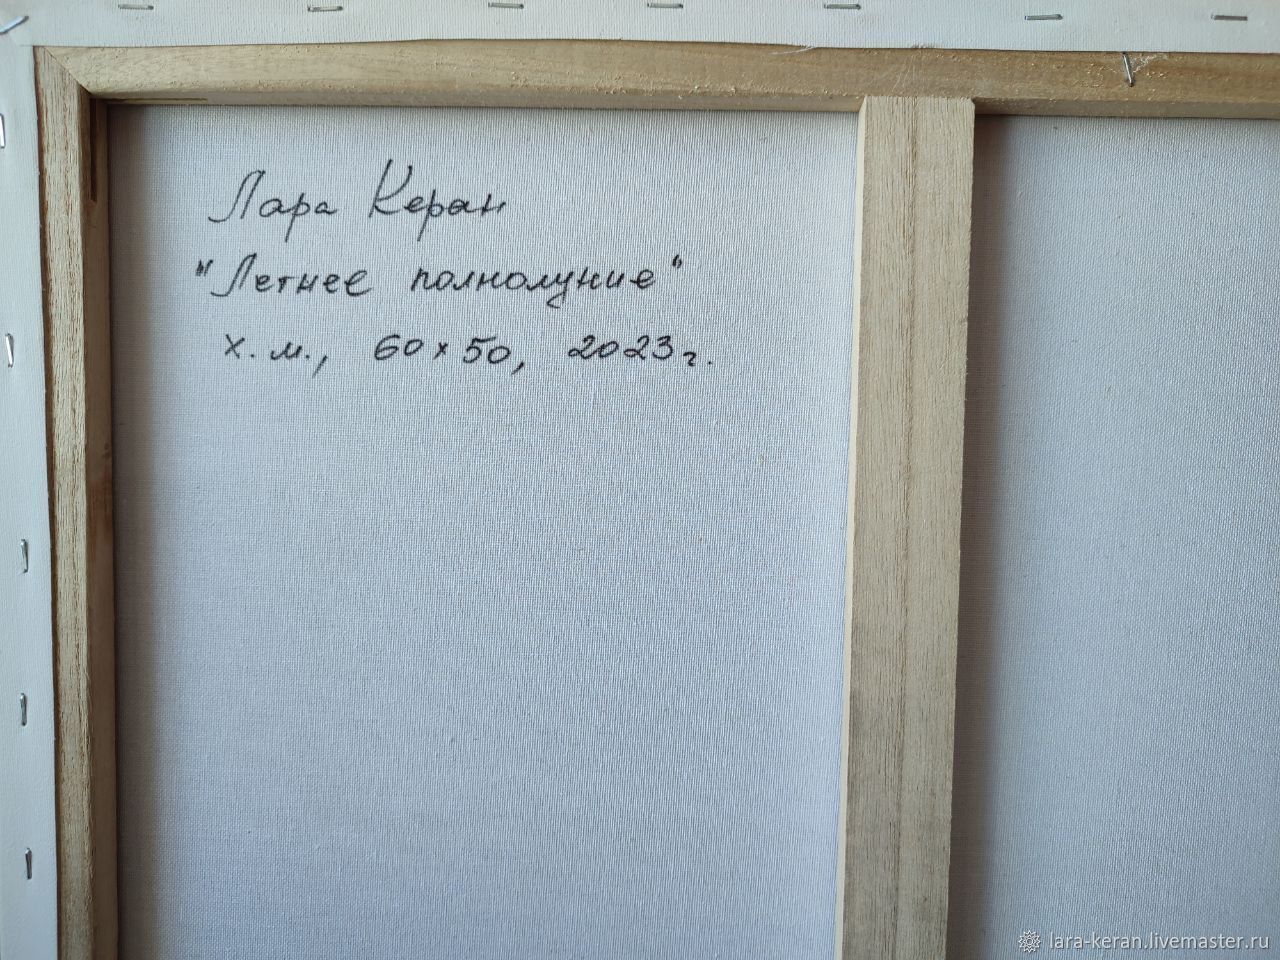 Лара Керан
"Летнее полнолуние"
х.м., 60х50, 2023г.
lara-keran.livemaster.ru